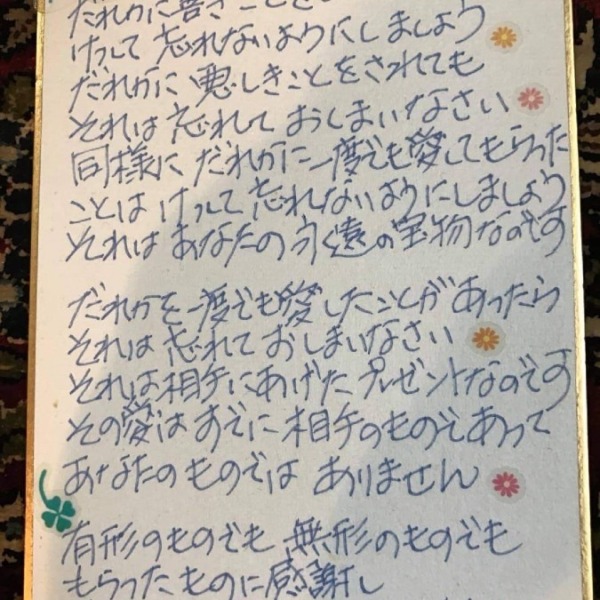 だれかに善きことを
けっして忘れないようにしましょう
だれかに悪しきことをされても
それは忘れておしまいなさい
同様にだれかに一度でも愛してもらった
ことはけっして忘れないようにしましょう
それはあなたの永遠の宝物なのです
だれかを一度でも愛したことがあったら
それは忘れておしまいなさい
それは相手にあげたプレゼントなのです
その愛はすでに相手のものであって
あなたのものではありません
有形のものでも無形のものでも
もらったものに感謝し